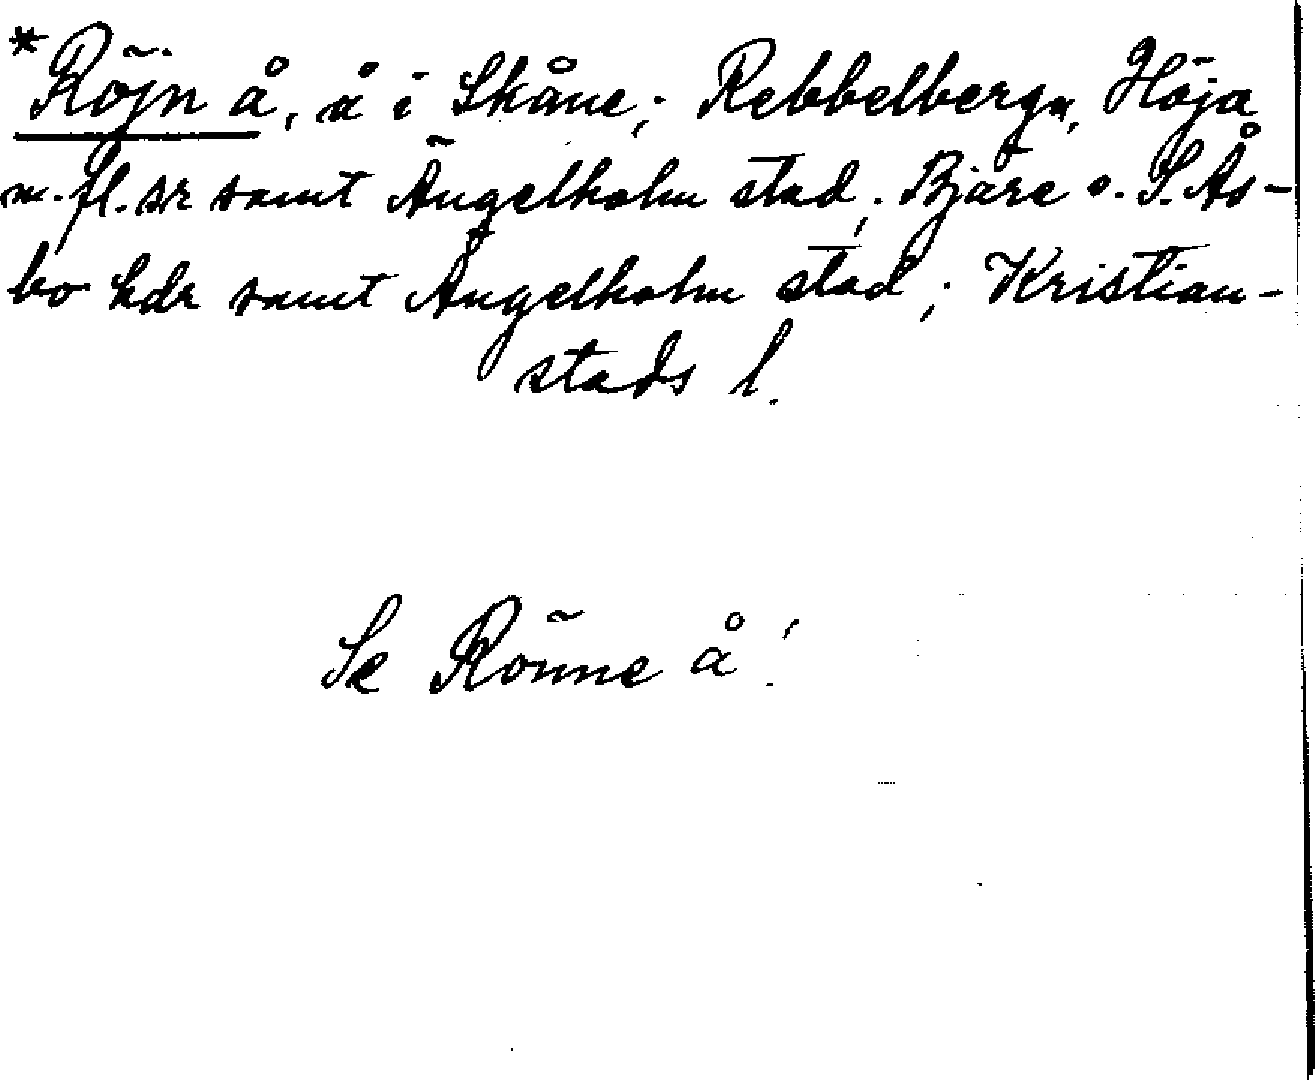 *Röjn å, å i Skåne; Rebbelberga, Höja
m. fl. snr samt Ängelholm stad; Bjäre o. S. Ås-
bo hdr samt Ängelholm stad; Kristian-
stads l.
Se Rönne å!